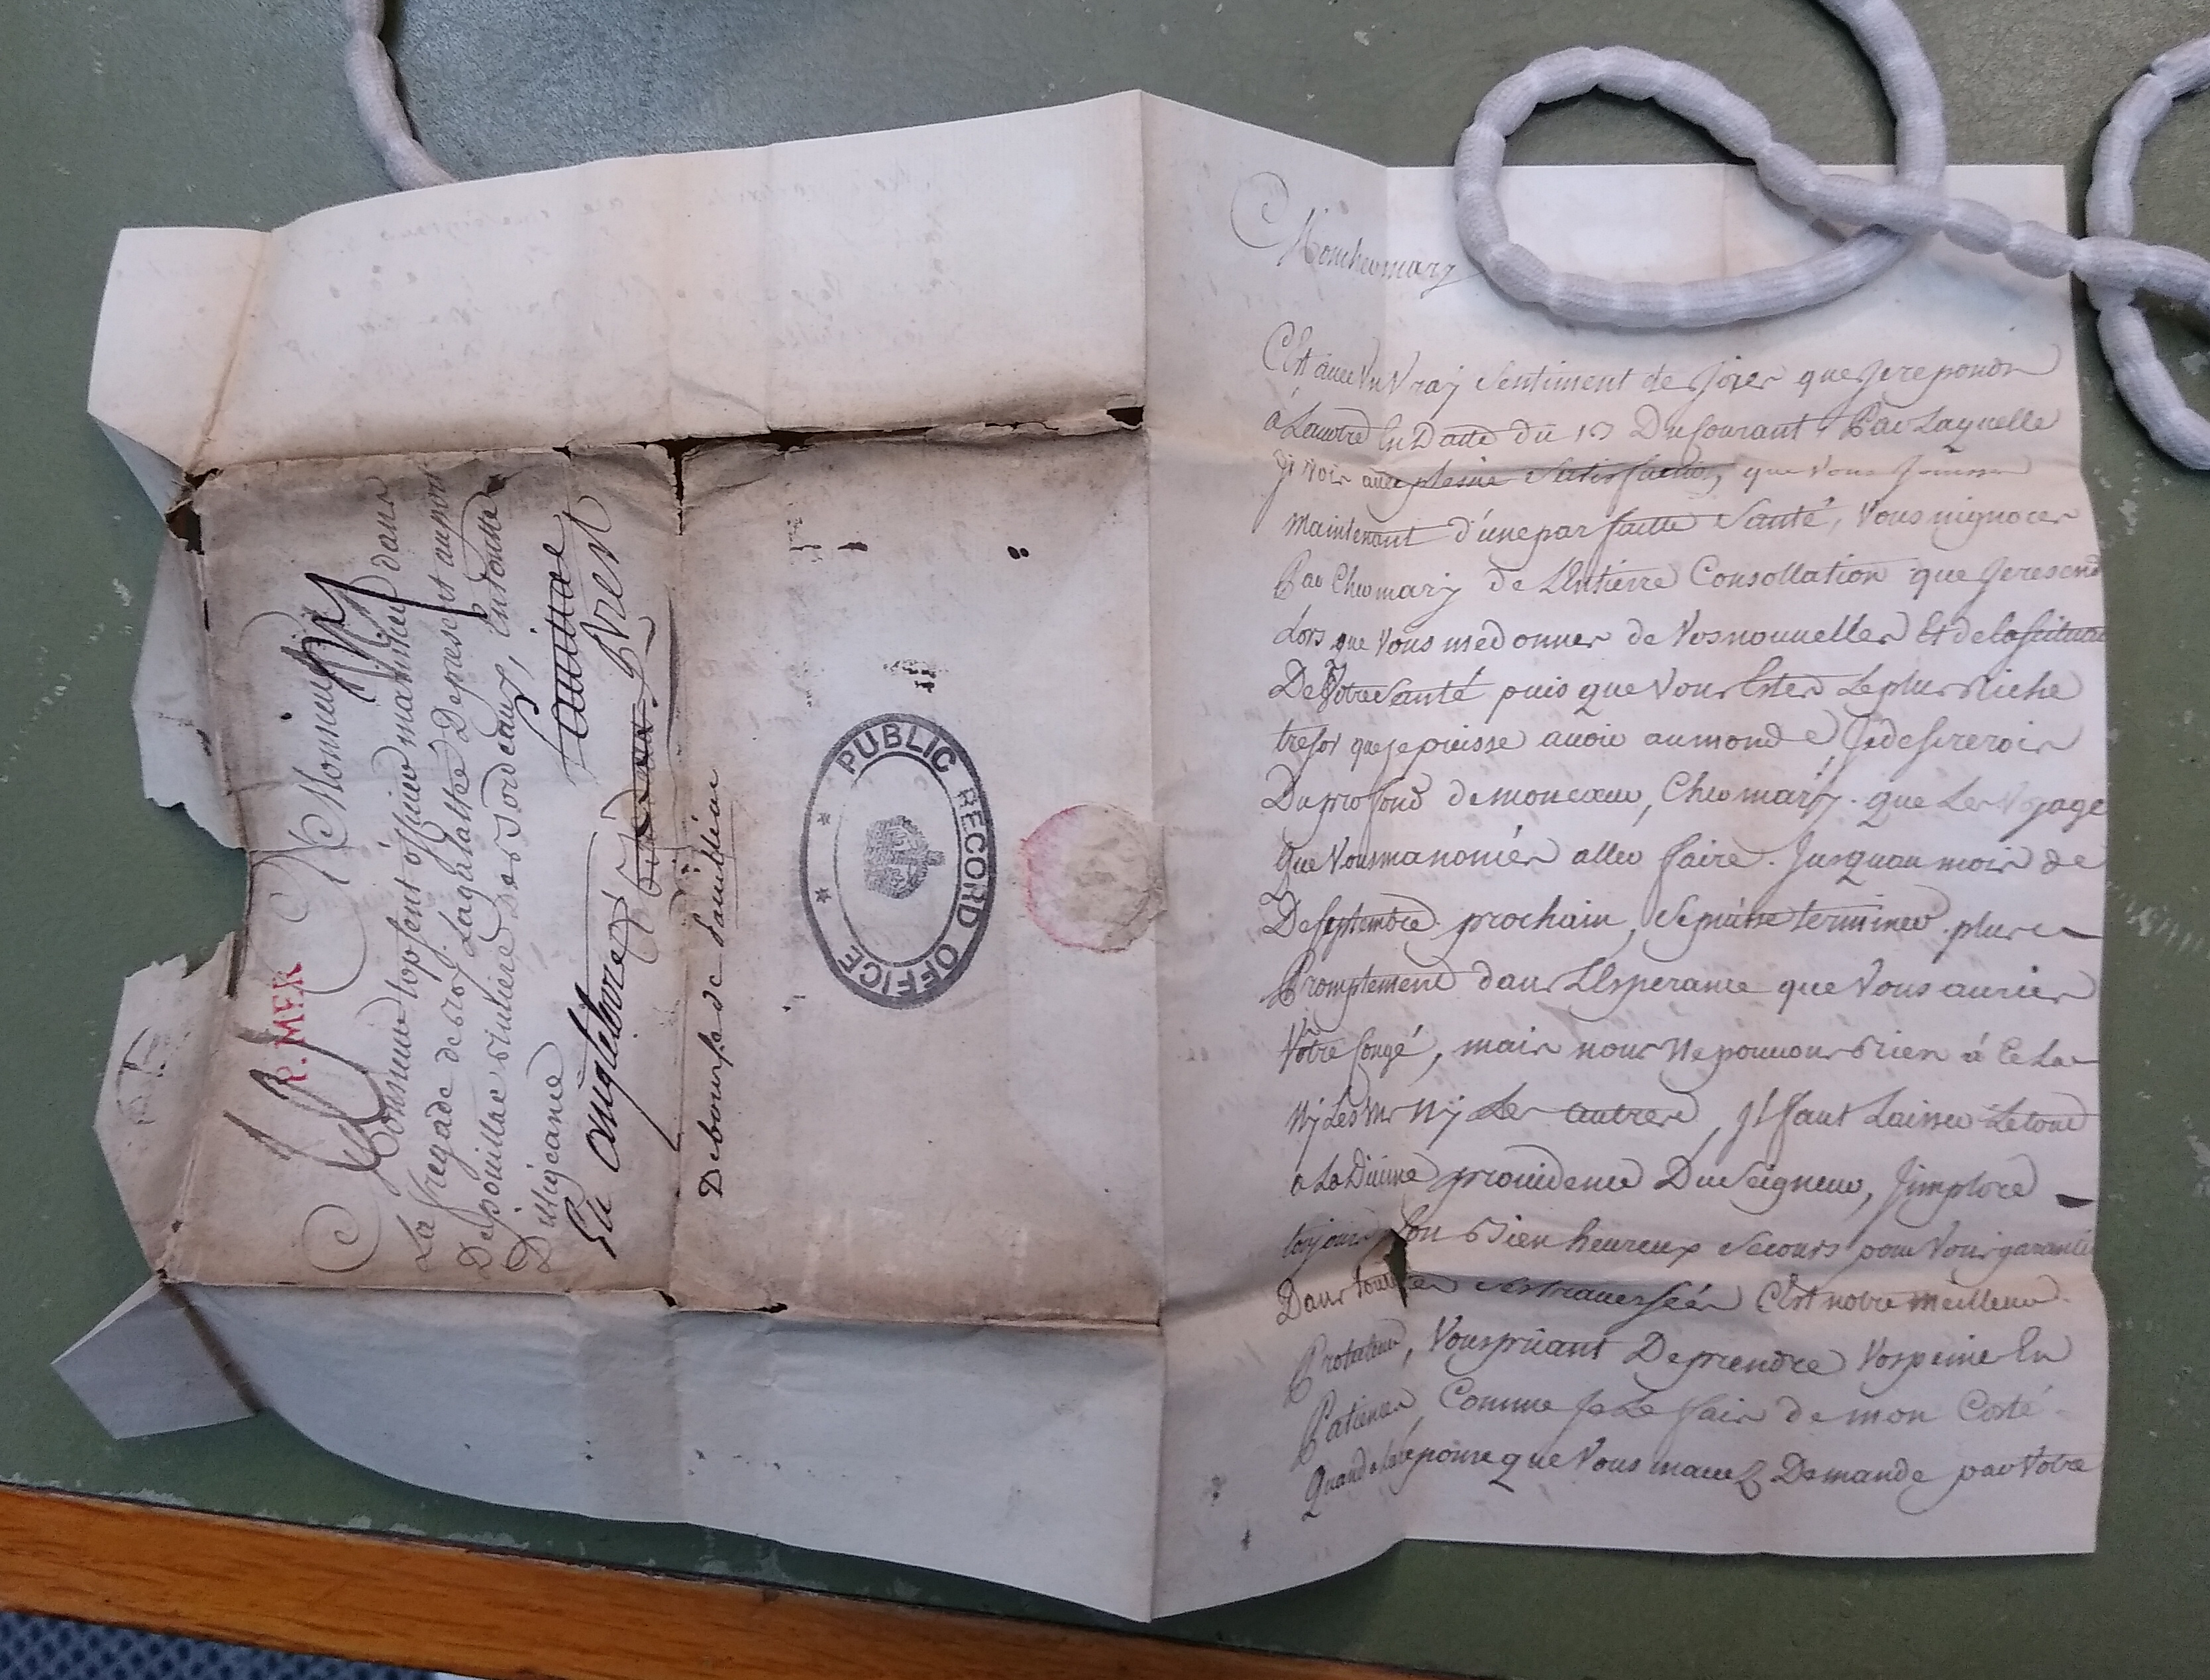 A Monsieur
Monsieur topsent officier marinier dans
La fregade du roy Lagalathée De present aupres
De pouillac riviere De Bordeaux, En toutte
Diligeance
En angletovre Brest
Debourse de Paimbœuf
P. MER
PUBLIC RECORD OFFICE
Moncher mary
C'Est avec Un Vray Sentiment de Joies que Je repondr
á Lauotre En Datte du 13 Du Courant Par Laquelle
Je vois avec pleine Satisfaction, que Vous Jouisser
maintenant d'une parfaitte Santé, Vous nignorer
Pas Cher mary de L'Entierre Consollation que Je resend
Lors que Vous me donner de Vos nouvelles Et de la scituat
De Votre Santé puis que Vous Ester Le plus Riche
tresor que je puisse avoir au monde, Je desirerois
Du profond de mon cœur, Cher mary. que Les Voyage
que Vous manonser aller faire. Jusquau mois de
De Septembre prochain, Se puisse terminer plus
Promptement dans L'Esperance que Vous auries
Votre Congé, mais nous Ne pouvons Rien á Ce La
Ny Les Uns Ny Les Autres, Jl faut Laisser Le tout
a La Divine providence Du Seigneur, J'implore
toujours Son Bien heureux Secours pour Vous garantir
Dans toutes Ses traversées C'Est notre meilleur
Protecteur, Vous priant De prendre Vos peine En
Patience, Comme Je Le fais de mon Costé
Quand a La réponse que Vous mavez Demande par Votre